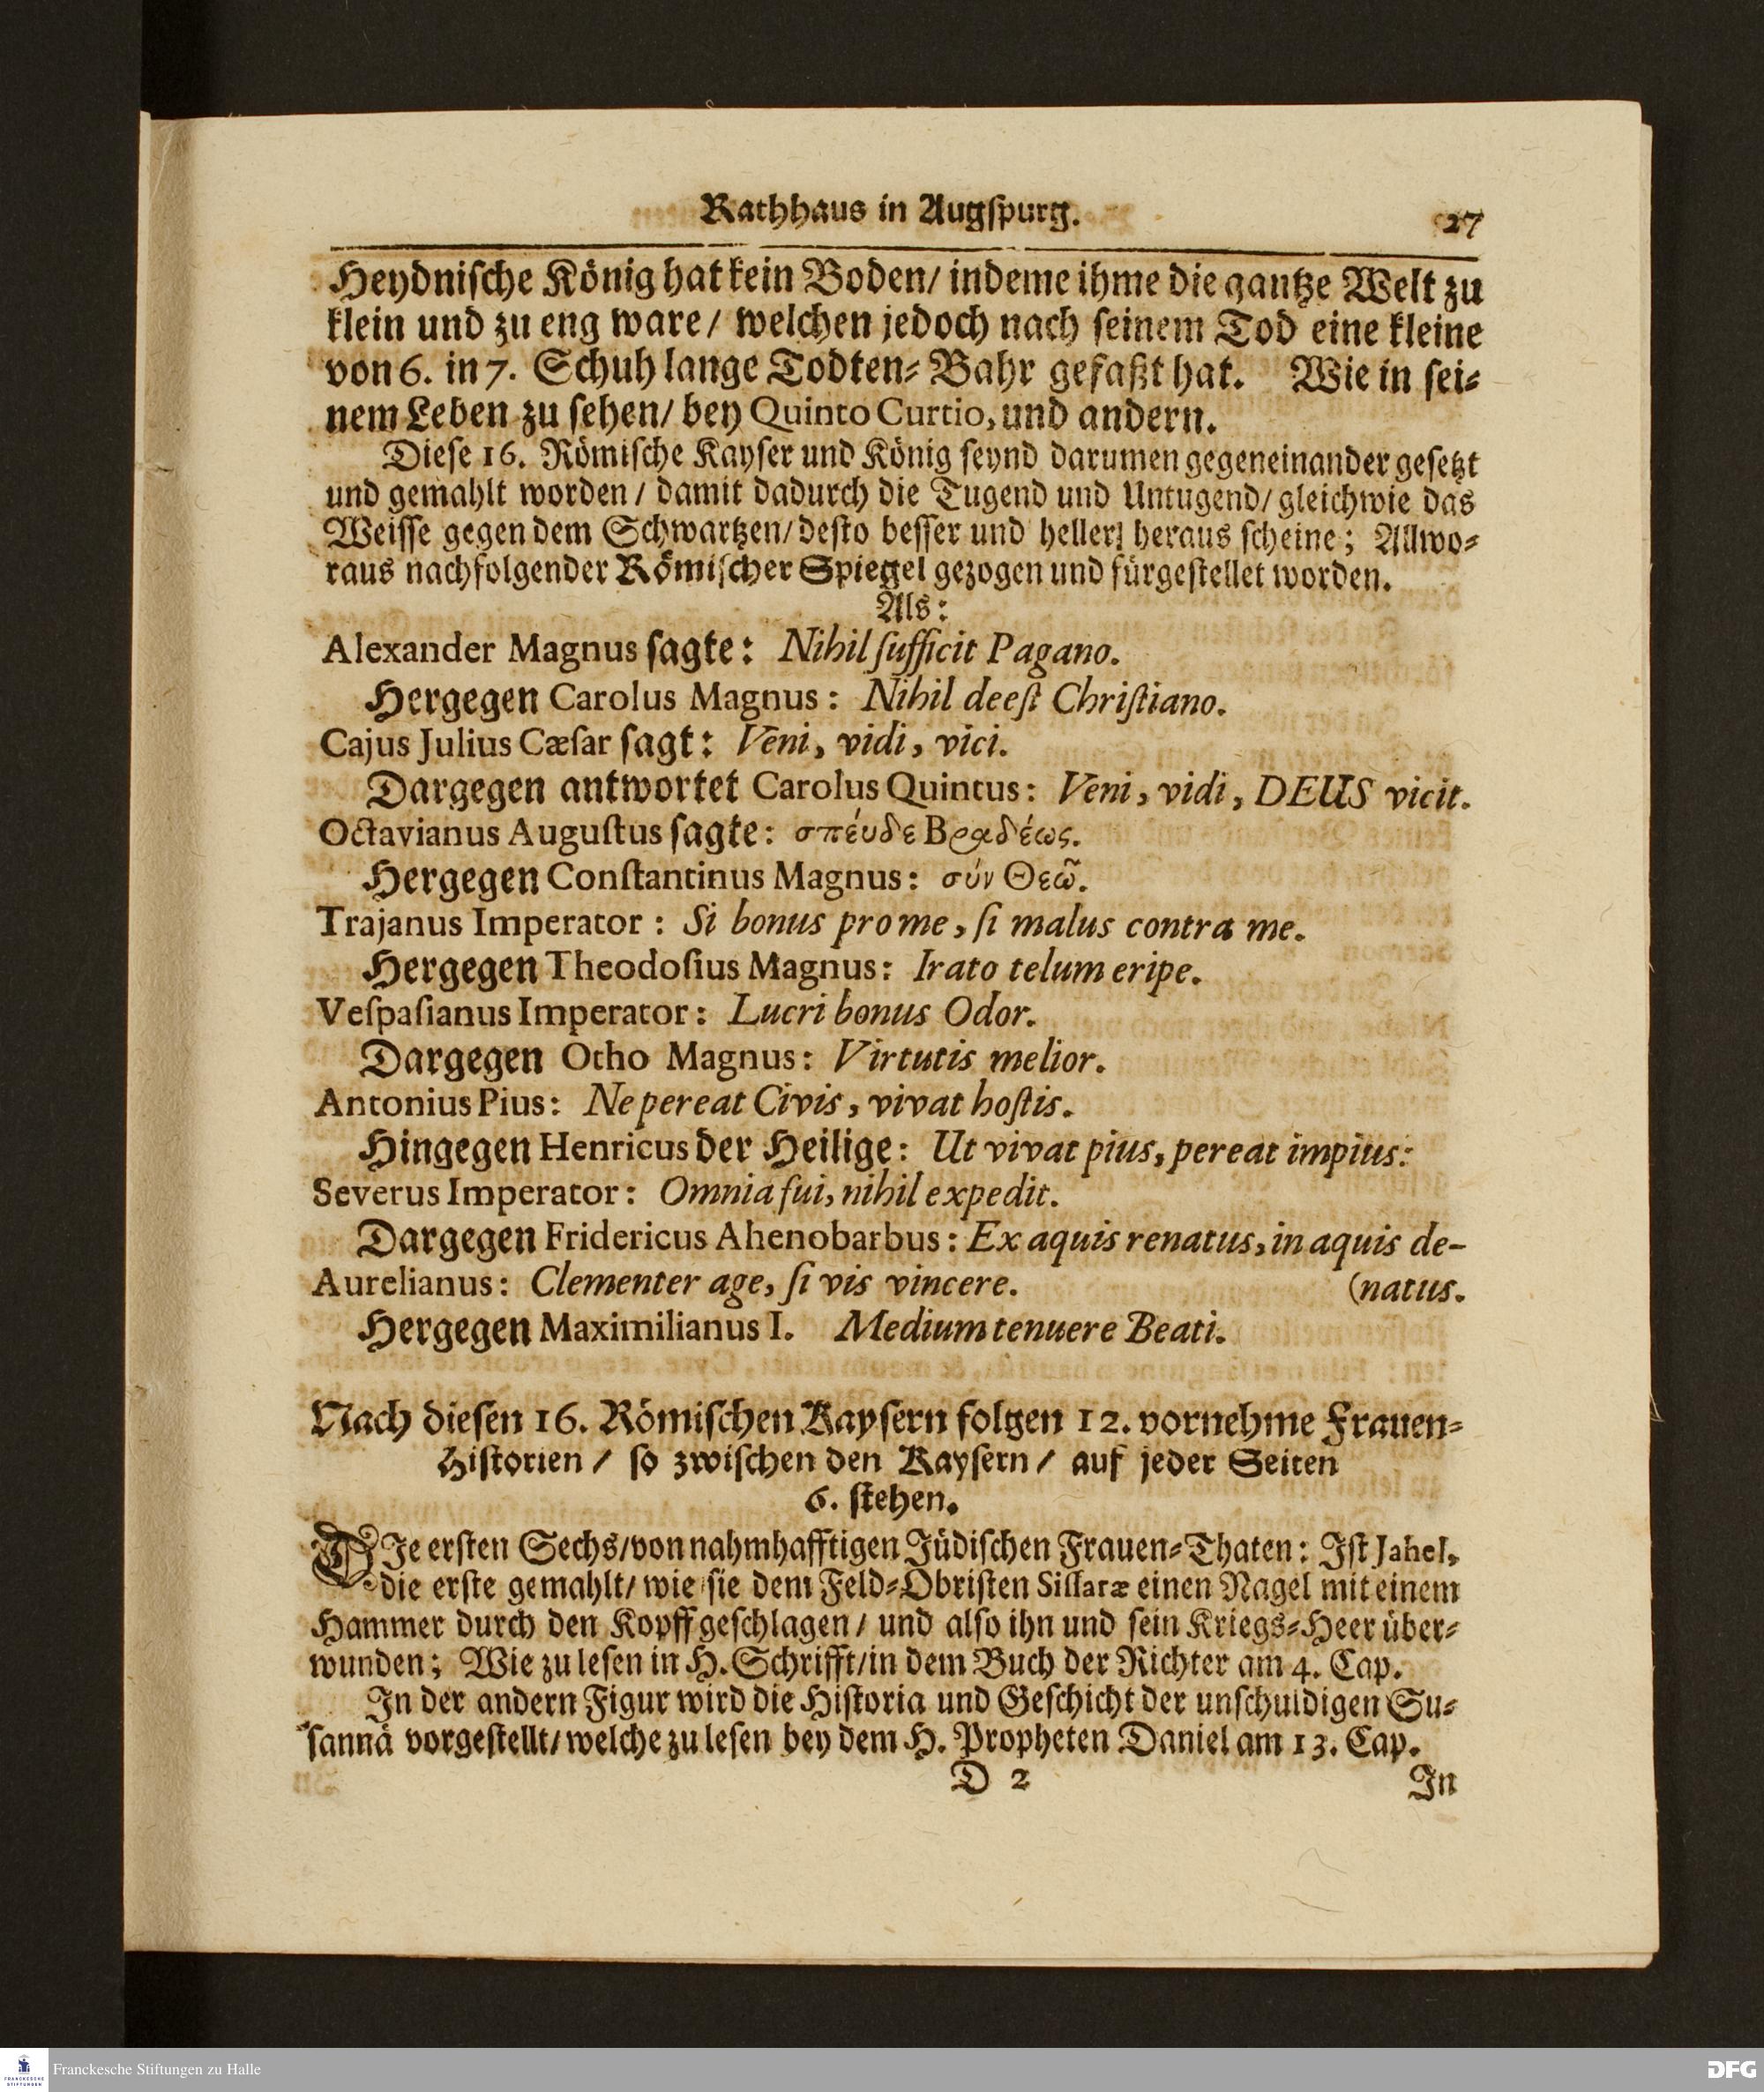 Rathhaus in Augſpurg. 27
Heydniſche König hat kein Boden/ indeme ihme die gantze Welt zu
klein und zu eng ware/ welchen jedoch nach ſeinem Tod eine kleine
von 6. in 7. Schuh lange Todten-Bahr gefaßt hat. Wie in ſei-
nem Leben zu ſehen/ bey Quinto Curtio, und andern.
Dieſe 16. Römiſche Kayſer und König ſeynd darumen gegeneinander geſetzt
und gemahlt worden/ damit dadurch die Tugend und Untugend/ gleichwie das
Weiſſe gegen dem Schwartzen/ deſto beſſer und heller heraus ſcheine; Allwo-
raus nachfolgender Römiſcher Spiegel gezogen und fürgeſtellet worden.
Als:
Alexander Magnus ſagte: Nihil ſufficit Pagano.
Hergegen Carolus Magnus: Nihil deeſt Chriſtiano.
Cajus Julius Cæſar ſagt: Veni, vidi, vici.
Dargegen antwortet Carolus Quintus: Veni, vidi, DEUS vicit.
Octavianus Auguſtus ſagte: σπέυδε Βραδέως.
Hergegen Conſtantinus Magnus: σύν Θεῶ.
Trajanus Imperator: Si bonus pro me, ſi malus contra me.
Hergegen Theodoſius Magnus: Irato telum eripe.
Veſpaſianus Imperator: Lucri bonus Odor.
Dargegen Otho Magnus: Virtutis melior.
Antonius Pius: Ne pereat Civis, vivat hoſtis.
Hingegen Henricus der Heilige: Ut vivat pius, pereat impius:
Severus Imperator: Omnia fui, nihil expedit.
Dargegen Fridericus Ahenobarbus: Ex aquis renatus, in aquis de-
Aurelianus: Clementer age, ſi vis vincere. (natus.
Hergegen Maximilianus I. Medium tenuere Beati.
Nach dieſen 16. Römiſchen Kayſern folgen 12. vornehme Frauen-
Hiſtorien/ ſo zwiſchen den Kayſern/ auf jeder Seiten
6. ſtehen.
DIe erſten Sechs/ von nahmhafftigen Jüdiſchen Frauen-Thaten: Iſt Jahel,
die erſte gemahlt/ wie ſie dem Feld-Obriſten Siſſaræ einen Nagel mit einem
Hammer durch den Kopff geſchlagen/ und alſo ihn und ſein Kriegs-Heer über-
wunden; Wie zu leſen in H. Schrifft/ in dem Buch der Richter am 4. Cap.
In der andern Figur wird die Hiſtoria und Geſchicht der unſchuldigen Su-
ſannä vorgeſtellt/ welche zu leſen bey dem H. Propheten Daniel am 13. Cap.
D 2 In
FRANCKESCHE STIFTUNGEN
Franckesche Stiftungen zu Halle
DFG